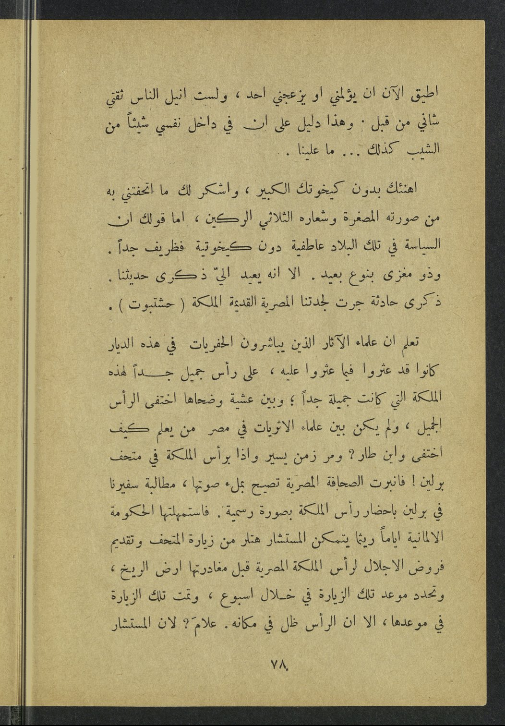 اطيق الآن ان يؤلمني او يزعجني احد ، ولست انيل الناس ثقتي
شاني من قبل . وهذا دليل على ان في داخل نفسي شيئاً من
الشيب كذلك ... ما علينا .
اهنئك بدون كيخوتك الكبير ، واشكر لك ما اتحفتني به
من صورته المصغرة وشعاره الثلاثي الركين ، اما قولك ان
السياسة في تلك البلاد عاطفية دون كيخوتية فظريف جداً .
وذو مغزى بنوع بعيد . الا انه يعيد اليّ ذكرى حديثنا .
ذكرى حادثة جرت لجدتنا المصرية القديمة الملكة ( حشتبوت ) .
تعلم ان علماء الآثار الذين يباشرون الحفريات في هذه الديار
كانوا قد عثروا فيما عثروا عليه ، على رأس جميل جداً لهذه
الملكة التي كانت جميلة جداً ؛ وبين عشية وضحاها اختفى الرأس
الجميل ، ولم يكن بين علماء الاثريات في مصر من يعلم كيف
اختفى واين طار ? ومر زمن يسير واذا برأس الملكة في متحف
برلين ! فانبرت الصحافة المصرية تصيح بملء صوتها ، مطالبة سفيرنا
في برلين باحضار رأس الملكة بصورة رسمية . فاستمهلتها الحكومة
الالمانية اياماً ريثما يتمكن المستشار هتلر من زيارة المتحف وتقديم
فروض الاجلال لرأس الملكة المصرية قبل مغادرتها ارض الريخ ،
وتحدد موعد تلك الزيارة في خلال اسبوع ، وتمت تلك الزيارة
في موعدها ، الا ان الرأس ظل في مكانه . علامَ ? لان المستشار
٧٨